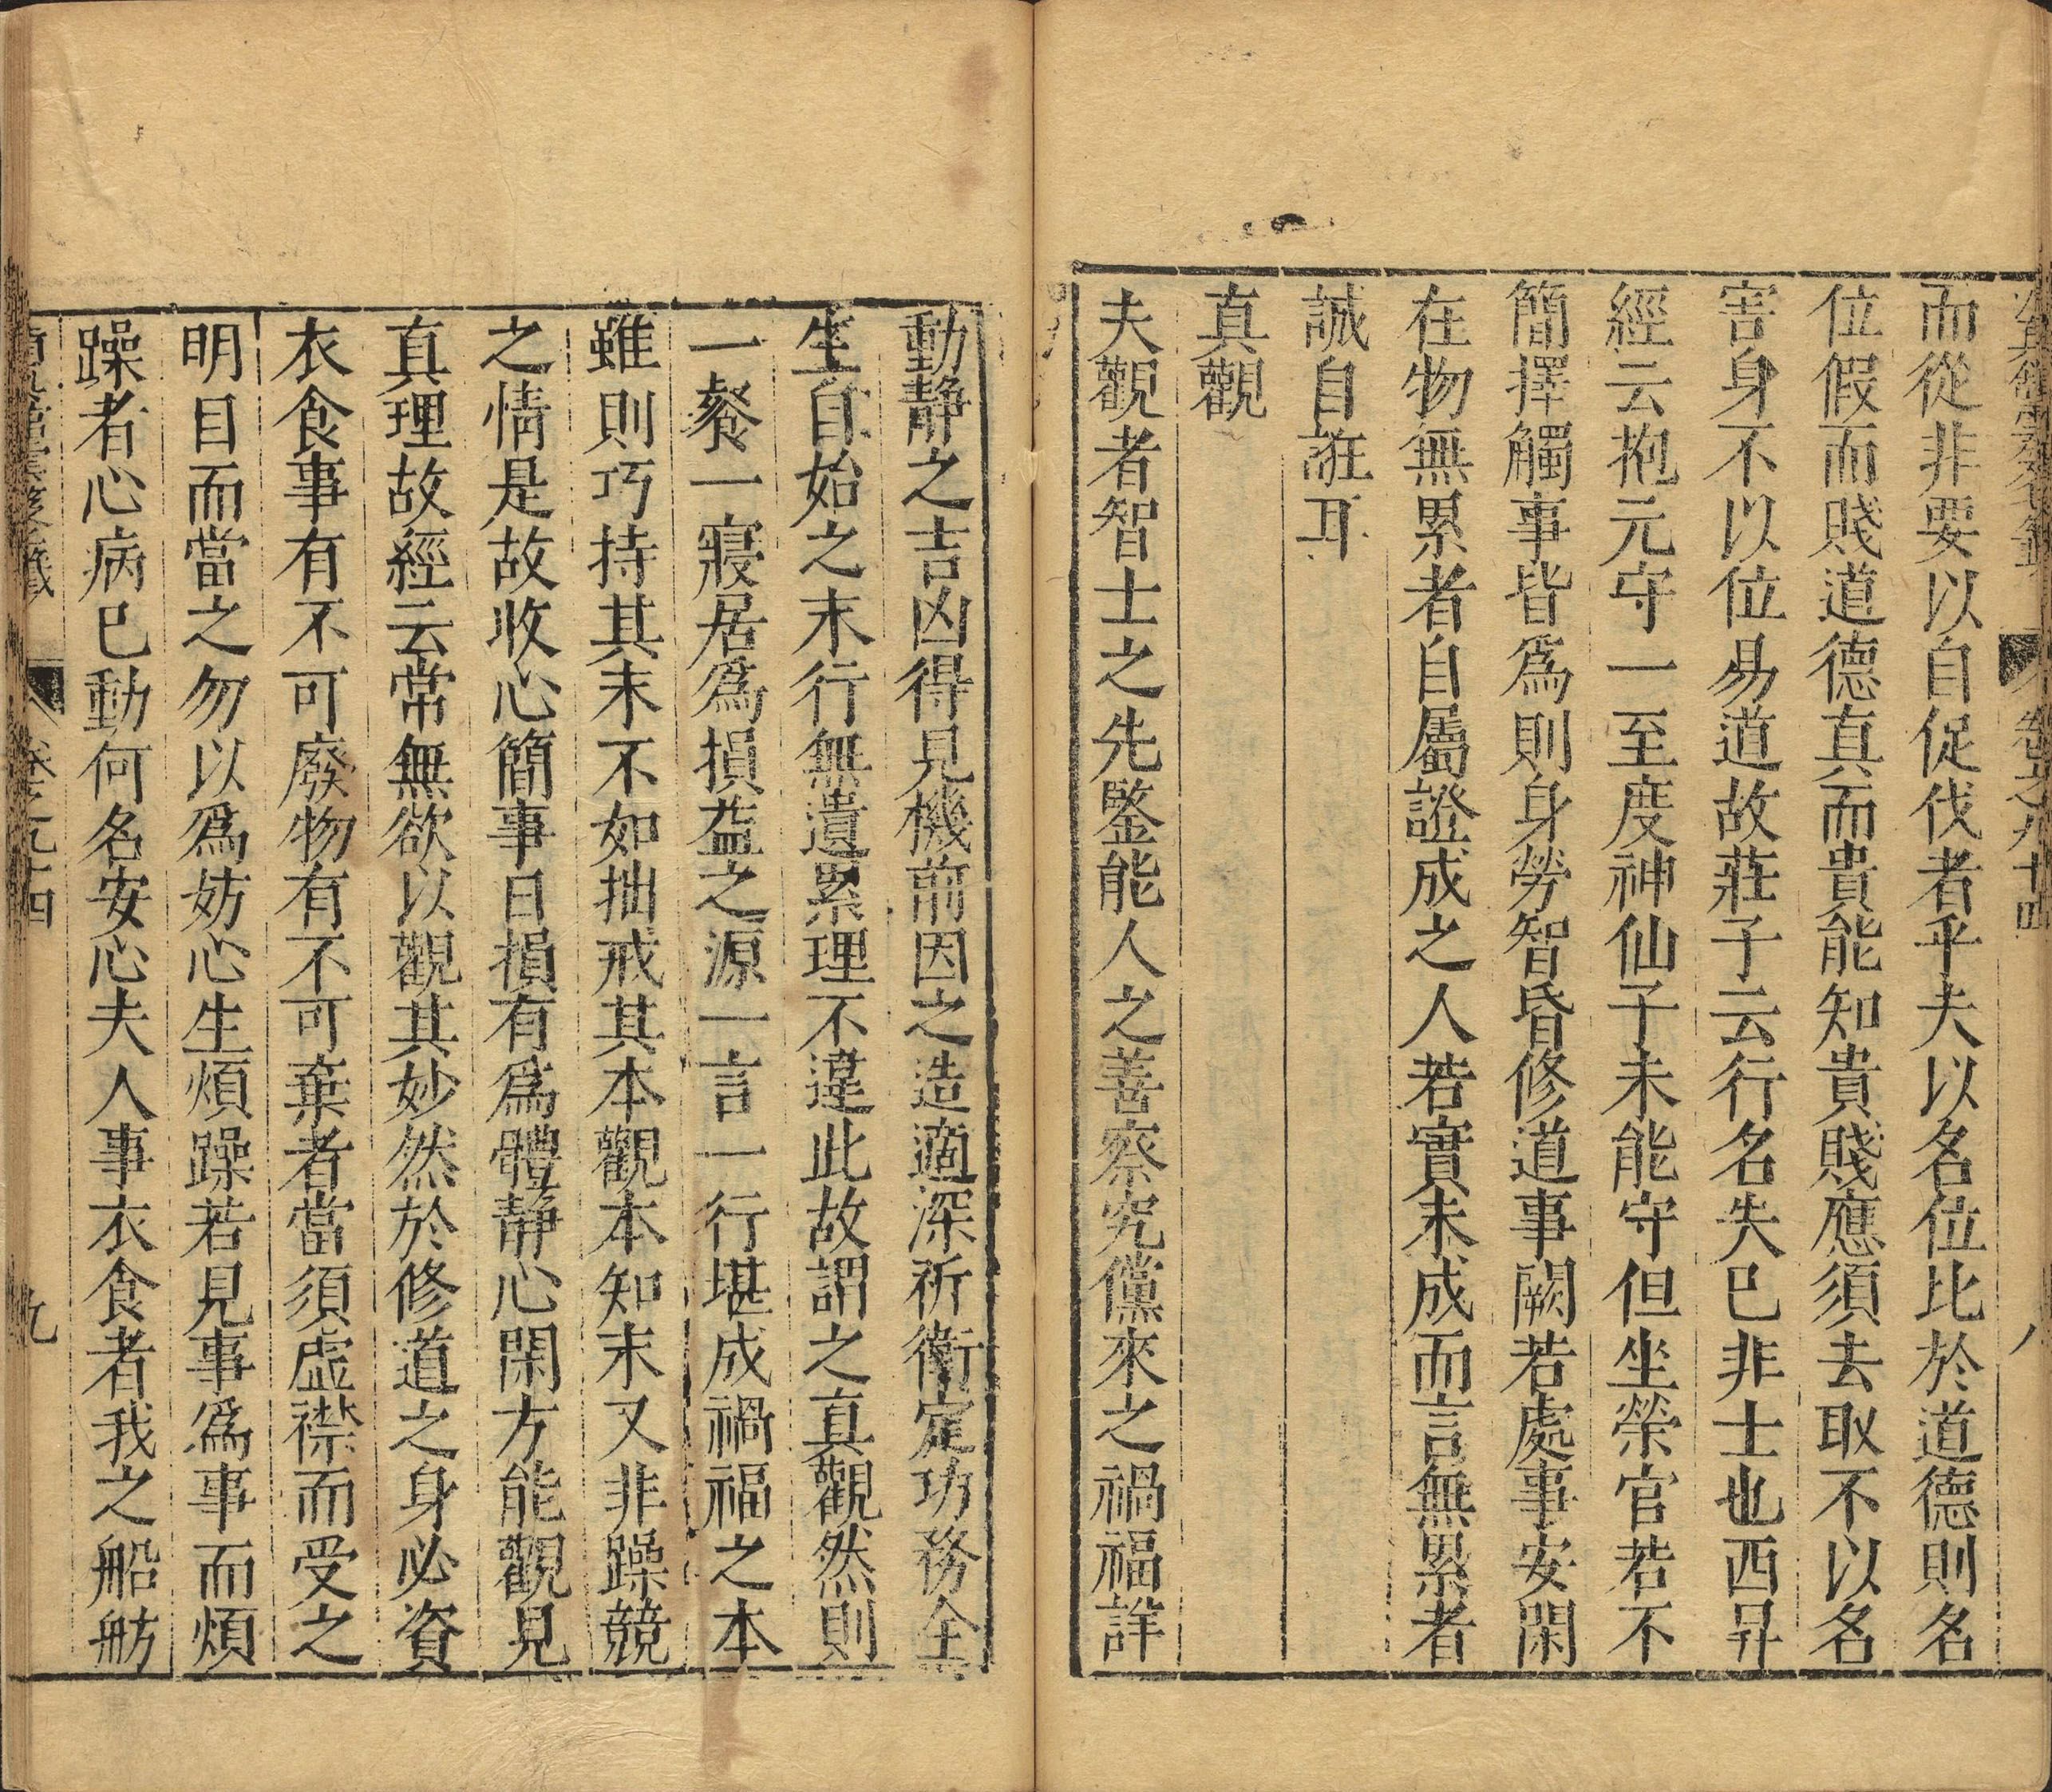 而從非要以自促伐者乎夫以名位比於道德則名
位假而賤道德真而貴能知貴賤應須去取不以名
害身不以位易道故莊子云行名失已非士也西昇
經云抱元守一至度神仙子未能守但坐榮官若不
簡擇觸事皆爲則身勞智昏修道事闕若處事安閑
在物無累者自屬證成之人若實未成而言無累者
誠自誑耳
真觀
夫觀者智士之先鑒能人之善察究儻來之禍福詳
動静之吉凶得見機前因之造適深祈衛定功務全
生自始之末行無遺累理不違此故謂之真觀然則
一餐一寢居爲損益之源一言一行堪成禍福之本
雖則巧持其末不如拙戒其本觀本知末又非躁競
之情是故收心簡事日損有爲體静心閑方能觀見
真理故經云常無欲以觀其妙然於修道之身必資
衣食事有不可廢物有不可棄者當須虛襟而受之
明目而當之勿以爲妨心生煩躁若見事爲事而煩
躁者心病已動何名安心夫人事衣食者我之船舫